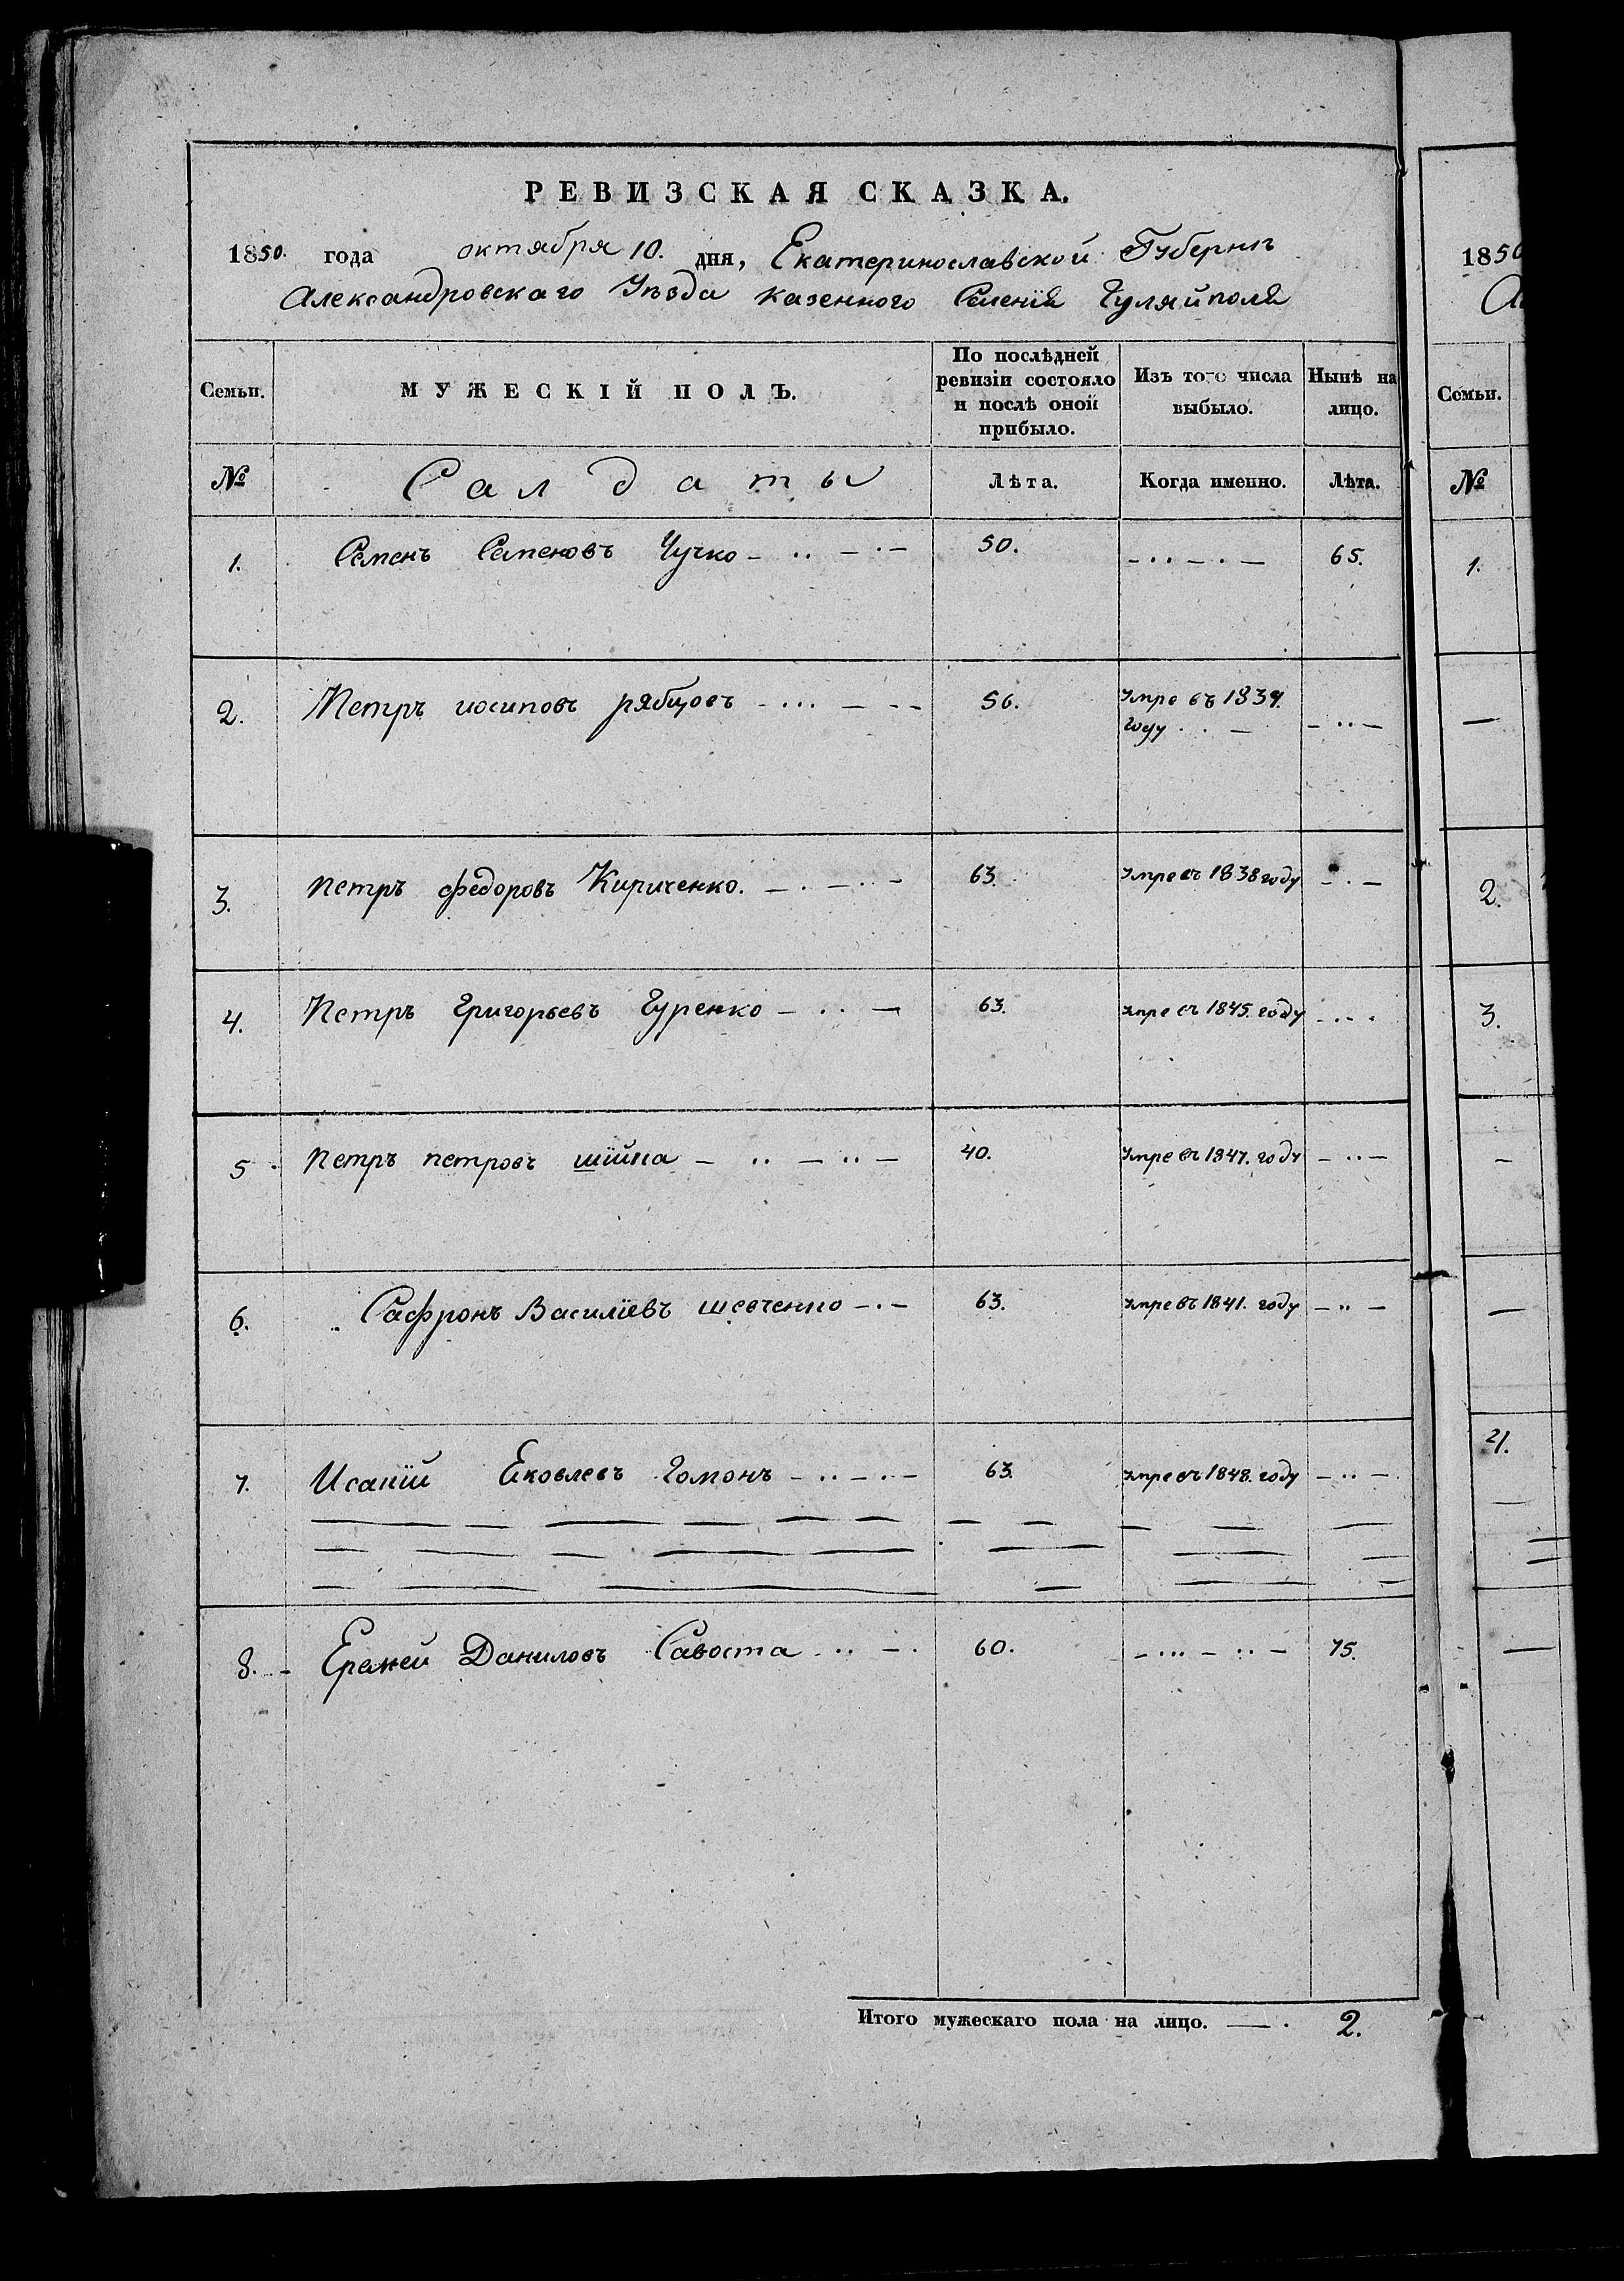 РЕВИЗСКАЯ СКАЗКА.
1850. года октября 10. дня, Екатеринославской Губерніи
Александровскаго Уѣзда казенного Селенія Гуляйполя
Семьи. МУЖЕСКІЙ ПОЛЪ. По послѣдней ревизіи состояло и послѣ оной прибыло. Изъ того числа выбыло. Нынѣ на лицо.
№ Салдаты Лѣта. Когда именно. Лѣта.
1. Семенъ Семеновъ Чучко 50. 65.
2. Петръ иосиповъ рябцовъ 56. Умре въ 1839.
году
3. Петръ федоровъ Кириченко. 63. Умре въ 1838 году
4. Петръ Григорьевъ Гуренко 63. умре въ 1845. году
5. Петръ петровъ 40. Умре въ 1847. году
6. Сафронъ Василіевъ шевченко 63. умре въ 1841. году
7. Исакій Яковлевъ Гомонъ 63. умре въ 1848. году
8. Еремей Даниловъ Савоста 60. 75.
Итого мужескаго пола на лицо. 2.
1850
Семьи.
№
1.
2.
3.
4.